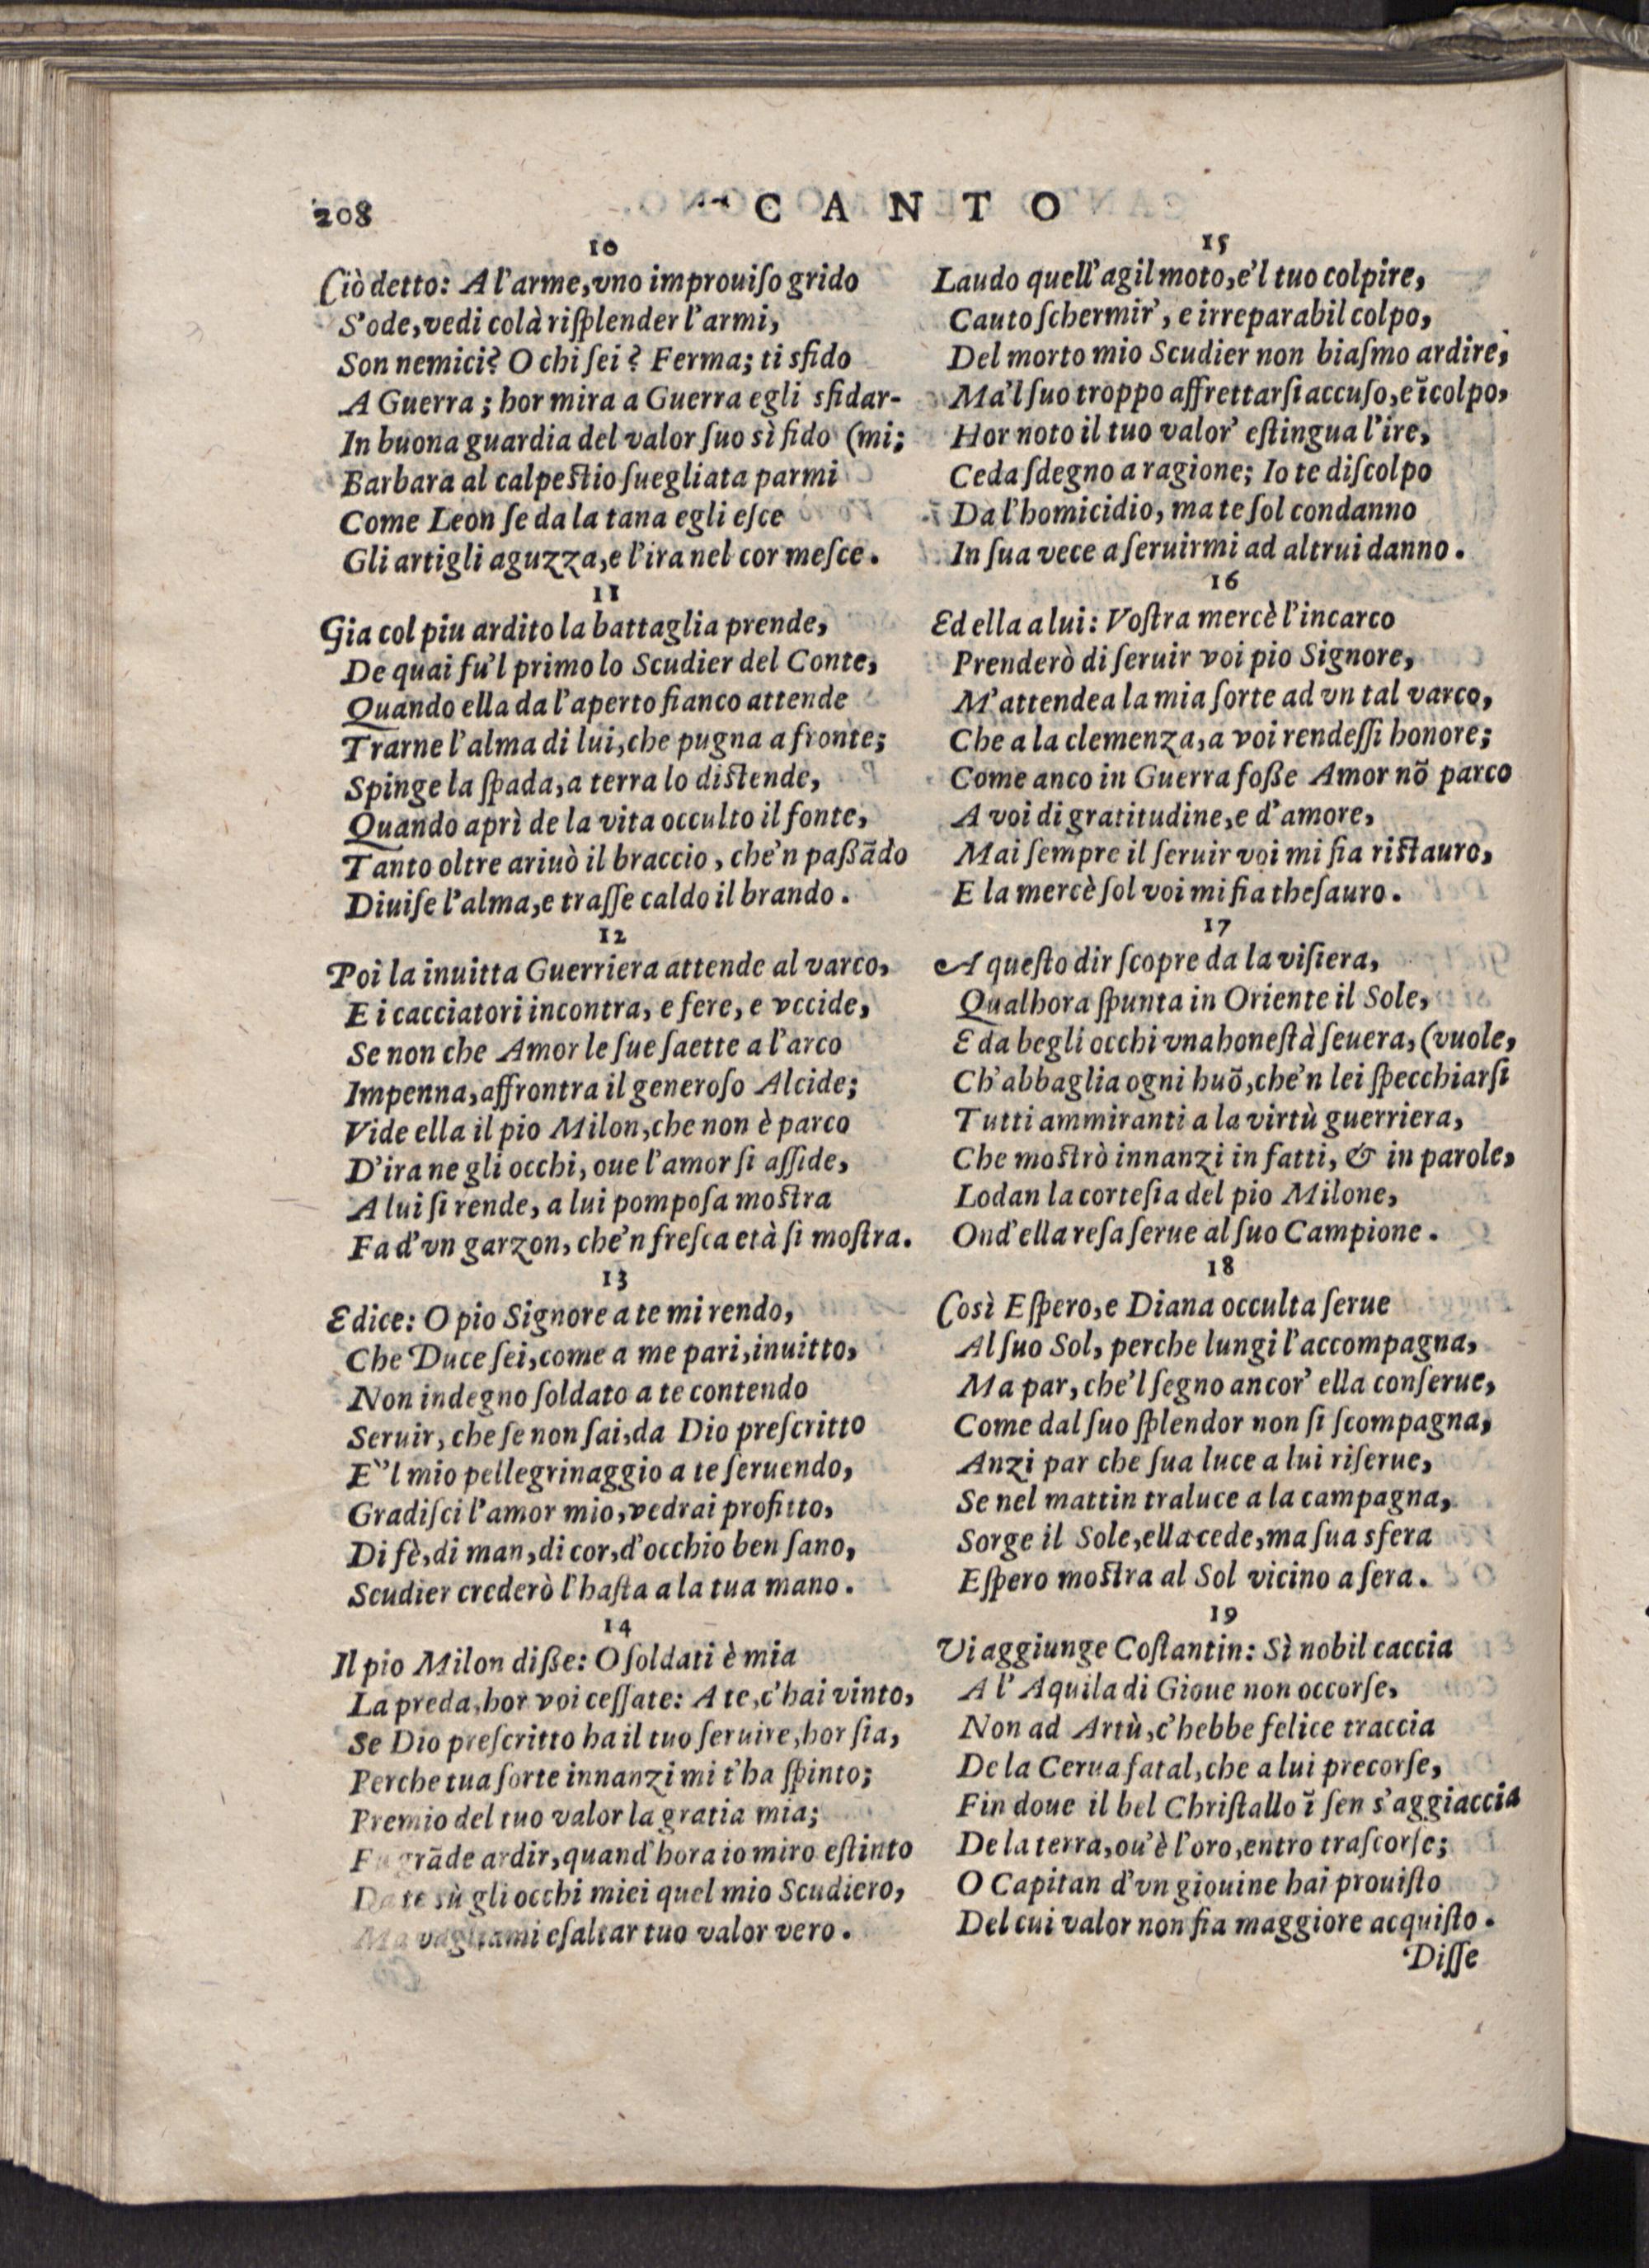 208
CANTO
10
Ciò detto: A l'arme, vno improuiſo grido
S'ode, vedi colà riſplender l'armi,
Son nemici? O chi ſei? Ferma; ti sfido
A Guerra; hor mira a Guerra egli sfidar-
In buona guardia del valor ſuo sì fido (mi;
Barbara al calpeſtio ſuegliata parmi
Come Leon ſe da la tana egli eſce
Gli artigli aguzza, e l'ira nel cor meſce.
11
Gia col piu ardito la battaglia prende,
De quai fu'l primo lo Scudier del Conte,
Quando ella da l'aperto fianco attende
Trarne l'alma di lui, che pugna a fronte;
Spinge la ſpada, a terra lo diſtende,
Quando aprì de la vita occulto il fonte,
Tanto oltre ariuò il braccio, che'n paßādo
Diuiſe l'alma, e traſſe caldo il brando.
12
Poi la inuitta Guerriera attende al varco,
E i cacciatori incontra, e fere, e vccide,
Se non che Amor le ſue ſaette a l'arco
Impenna, affrontra il generoſo Alcide;
Vide ella il pio Milon, che non è parco
D'ira ne gli occhi, oue l'amor ſi aſſide,
A lui ſi rende, a lui pompoſa moſtra
Fa d'vn garzon, che'n freſca età ſi moſtra.
13
E dice: O pio Signore a te mi rendo,
Che Duce ſei, come a me pari, inuitto,
Non indegno ſoldato a te contendo
Seruir, che ſe non ſai, da Dio preſcritto
E`'l mio pellegrinaggio a te ſeruendo,
Gradiſci l'amor mio, vedrai profitto,
Di fè, di man, di cor, d'occhio ben ſano,
Scudier crederò l'haſta a la tua mano.
14
Il pio Milon diße: O ſoldati è mia
La preda, hor voi ceſſate: A te, c'hai vinto,
Se Dio preſcritto ha il tuo ſeruire, hor ſia,
Perche tua ſorte innanzi mi t'ha ſpinto;
Premio del tuo valor la gratia mia;
Fu grāde ardir, quand'hora io miro eſtinto
Da te sù gli occhi miei quel mio Scudiero,
Ma vagliami eſaltar tuo valor vero.
15
Laudo quell'agil moto, e'l tuo colpire,
Cauto ſchermir', e irreparabil colpo,
Del morto mio Scudier non biaſmo ardire,
Ma'l ſuo troppo affrettarſi accuſo, e īcolpo,
Hor noto il tuo valor' eſtingua l'ire,
Ceda ſdegno a ragione; Io te diſcolpo
Da l'homicidio, ma te ſol condanno
In ſua vece a ſeruirmi ad altrui danno.
16
Ed ella a lui: Voſtra mercè l'incarco
Prenderò di ſeruir voi pio Signore,
M'attendea la mia ſorte ad vn tal varco,
Che a la clemenza, a voi rendeſſi honore;
Come anco in Guerra foße Amor nō parco
A voi di gratitudine, e d'amore,
Mai ſempre il ſeruir voi mi fia riſtauro,
E la mercè ſol voi mi fia theſauro.
17
A queſto dir ſcopre da la viſiera,
Qualhora ſpunta in Oriente il Sole,
E da begli occhi vna honeſtà ſeuera, (vuole,
Ch'abbaglia ogni huō, che'n lei ſpecchiarſi
Tutti ammiranti a la virtù guerriera,
Che moſtrò innanzi in fatti, & in parole,
Lodan la corteſia del pio Milone,
Ond'ella reſa ſerue al ſuo Campione.
18
Così Eſpero, e Diana occulta ſerue
Al ſuo Sol, perche lungi l'accompagna,
Ma par, che'l ſegno ancor' ella conſerue,
Come dal ſuo ſplendor non ſi ſcompagna,
Anzi par che ſua luce a lui riſerue,
Se nel mattin traluce a la campagna,
Sorge il Sole, ella cede, ma ſua sfera
Eſpero moſtra al Sol vicino a ſera.
19
Vi aggiunge Coſtantin: Sì nobil caccia
A l'Aquila di Gioue non occorſe,
Non ad Artù, c'hebbe felice traccia
De la Cerua fatal, che a lui precorſe,
Fin doue il bel Chriſtallo ī ſen s'aggiaccia
De la terra, ou'è l'oro, entro traſcorſe;
O Capitan d'vn giouine hai prouiſto
Del cui valor non fia maggiore acquiſto.
Diſſe